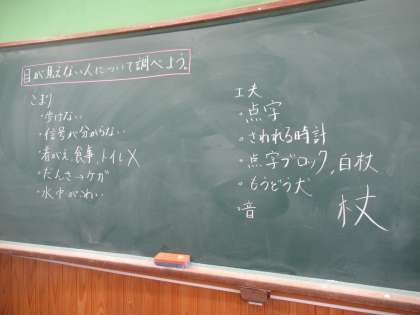 目が見えない人について調べよう。
こまり
・歩けない
・信号が分からない
・着がえ、食事、トイレX
・たんさ→ケガ
・水中がこわい
工夫
・点字
・さわれる時計
・点字ブロック、白杖
・もうどう犬
・音
杖